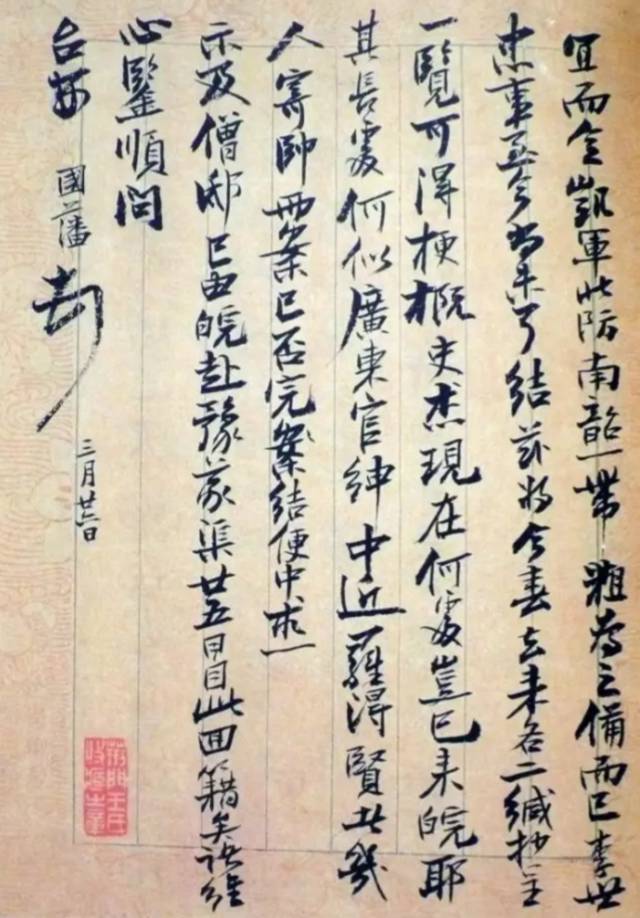 宜而令凱軍北防南韶一帶粗為之備而已李世
忠事至今尚未了結茲將今春去来各二緘抄呈
一覽可得梗概史杰現在何處豈已来皖耶
其長處何似廣東官紳中近羅得賢者幾
人寄帥兩案已否完案結便中求
示及僧邸已由皖赴豫義渠廿五日自此回籍矣諸維
心鑒順問
台安
國藩
三月廿六日